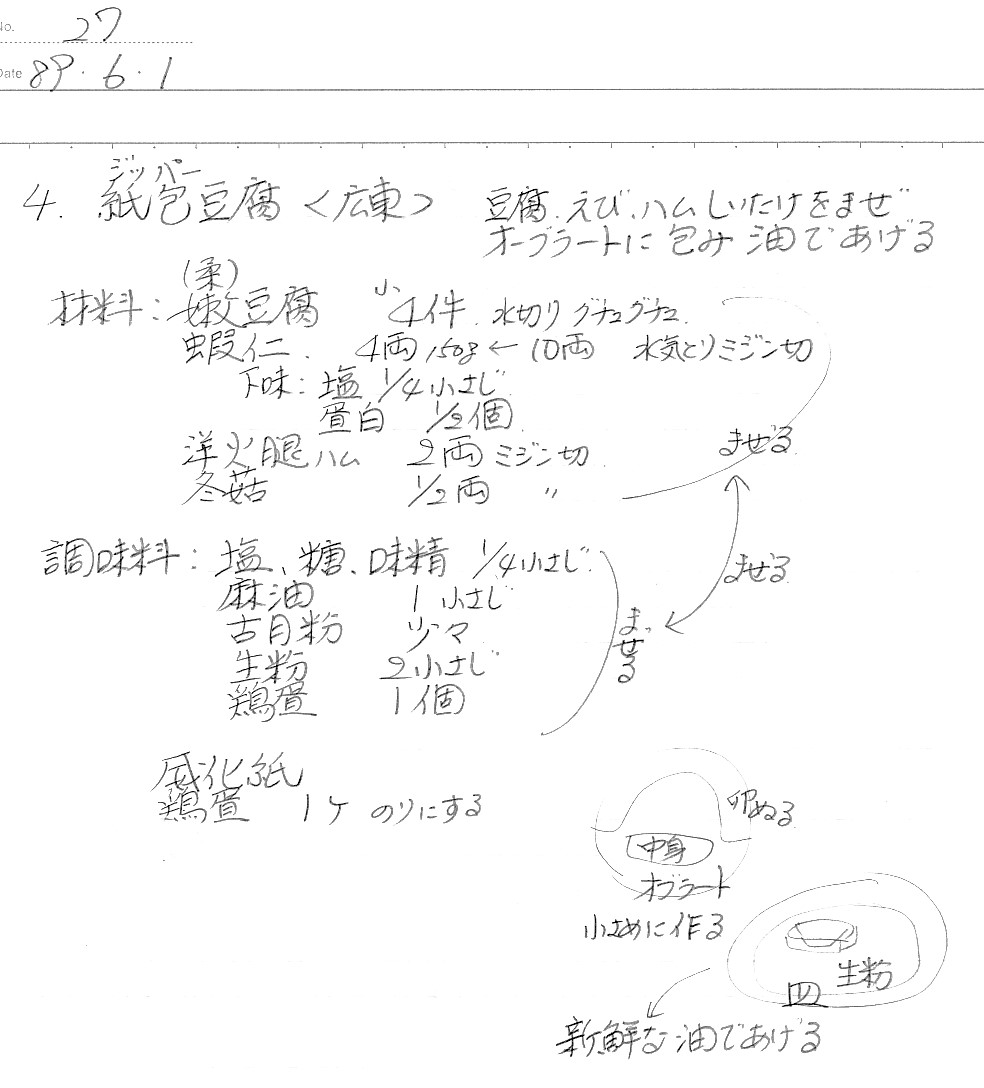 No. 27
Date 89・6・1
ジッパー
4. 紙包豆腐〈広東〉 豆腐、えび、ハム しいたけをまぜ
オーブラートに包み 油であげる
(柔)
材料: 嫩豆腐 小4件 水切り グチュグチュ
蝦仁. 4両 150g ← 10両 水気とりミジン切
下味: 塩 1/4小さじ
蛋白 1/2個
洋火腿 ハム 2両 ミジン切
まぜる
冬菇 1/2両 〃
調味料: 塩、糖、味精 1/4小さじ
まぜる
麻油 1小さじ
古月粉 少々
まぜる
生粉 2小さじ
鶏蛋 1個
威化紙
鶏蛋 1ケ のりにする
卵ぬる
中身
オブラート
小さめに作る
生粉
皿
新鮮な油であげる